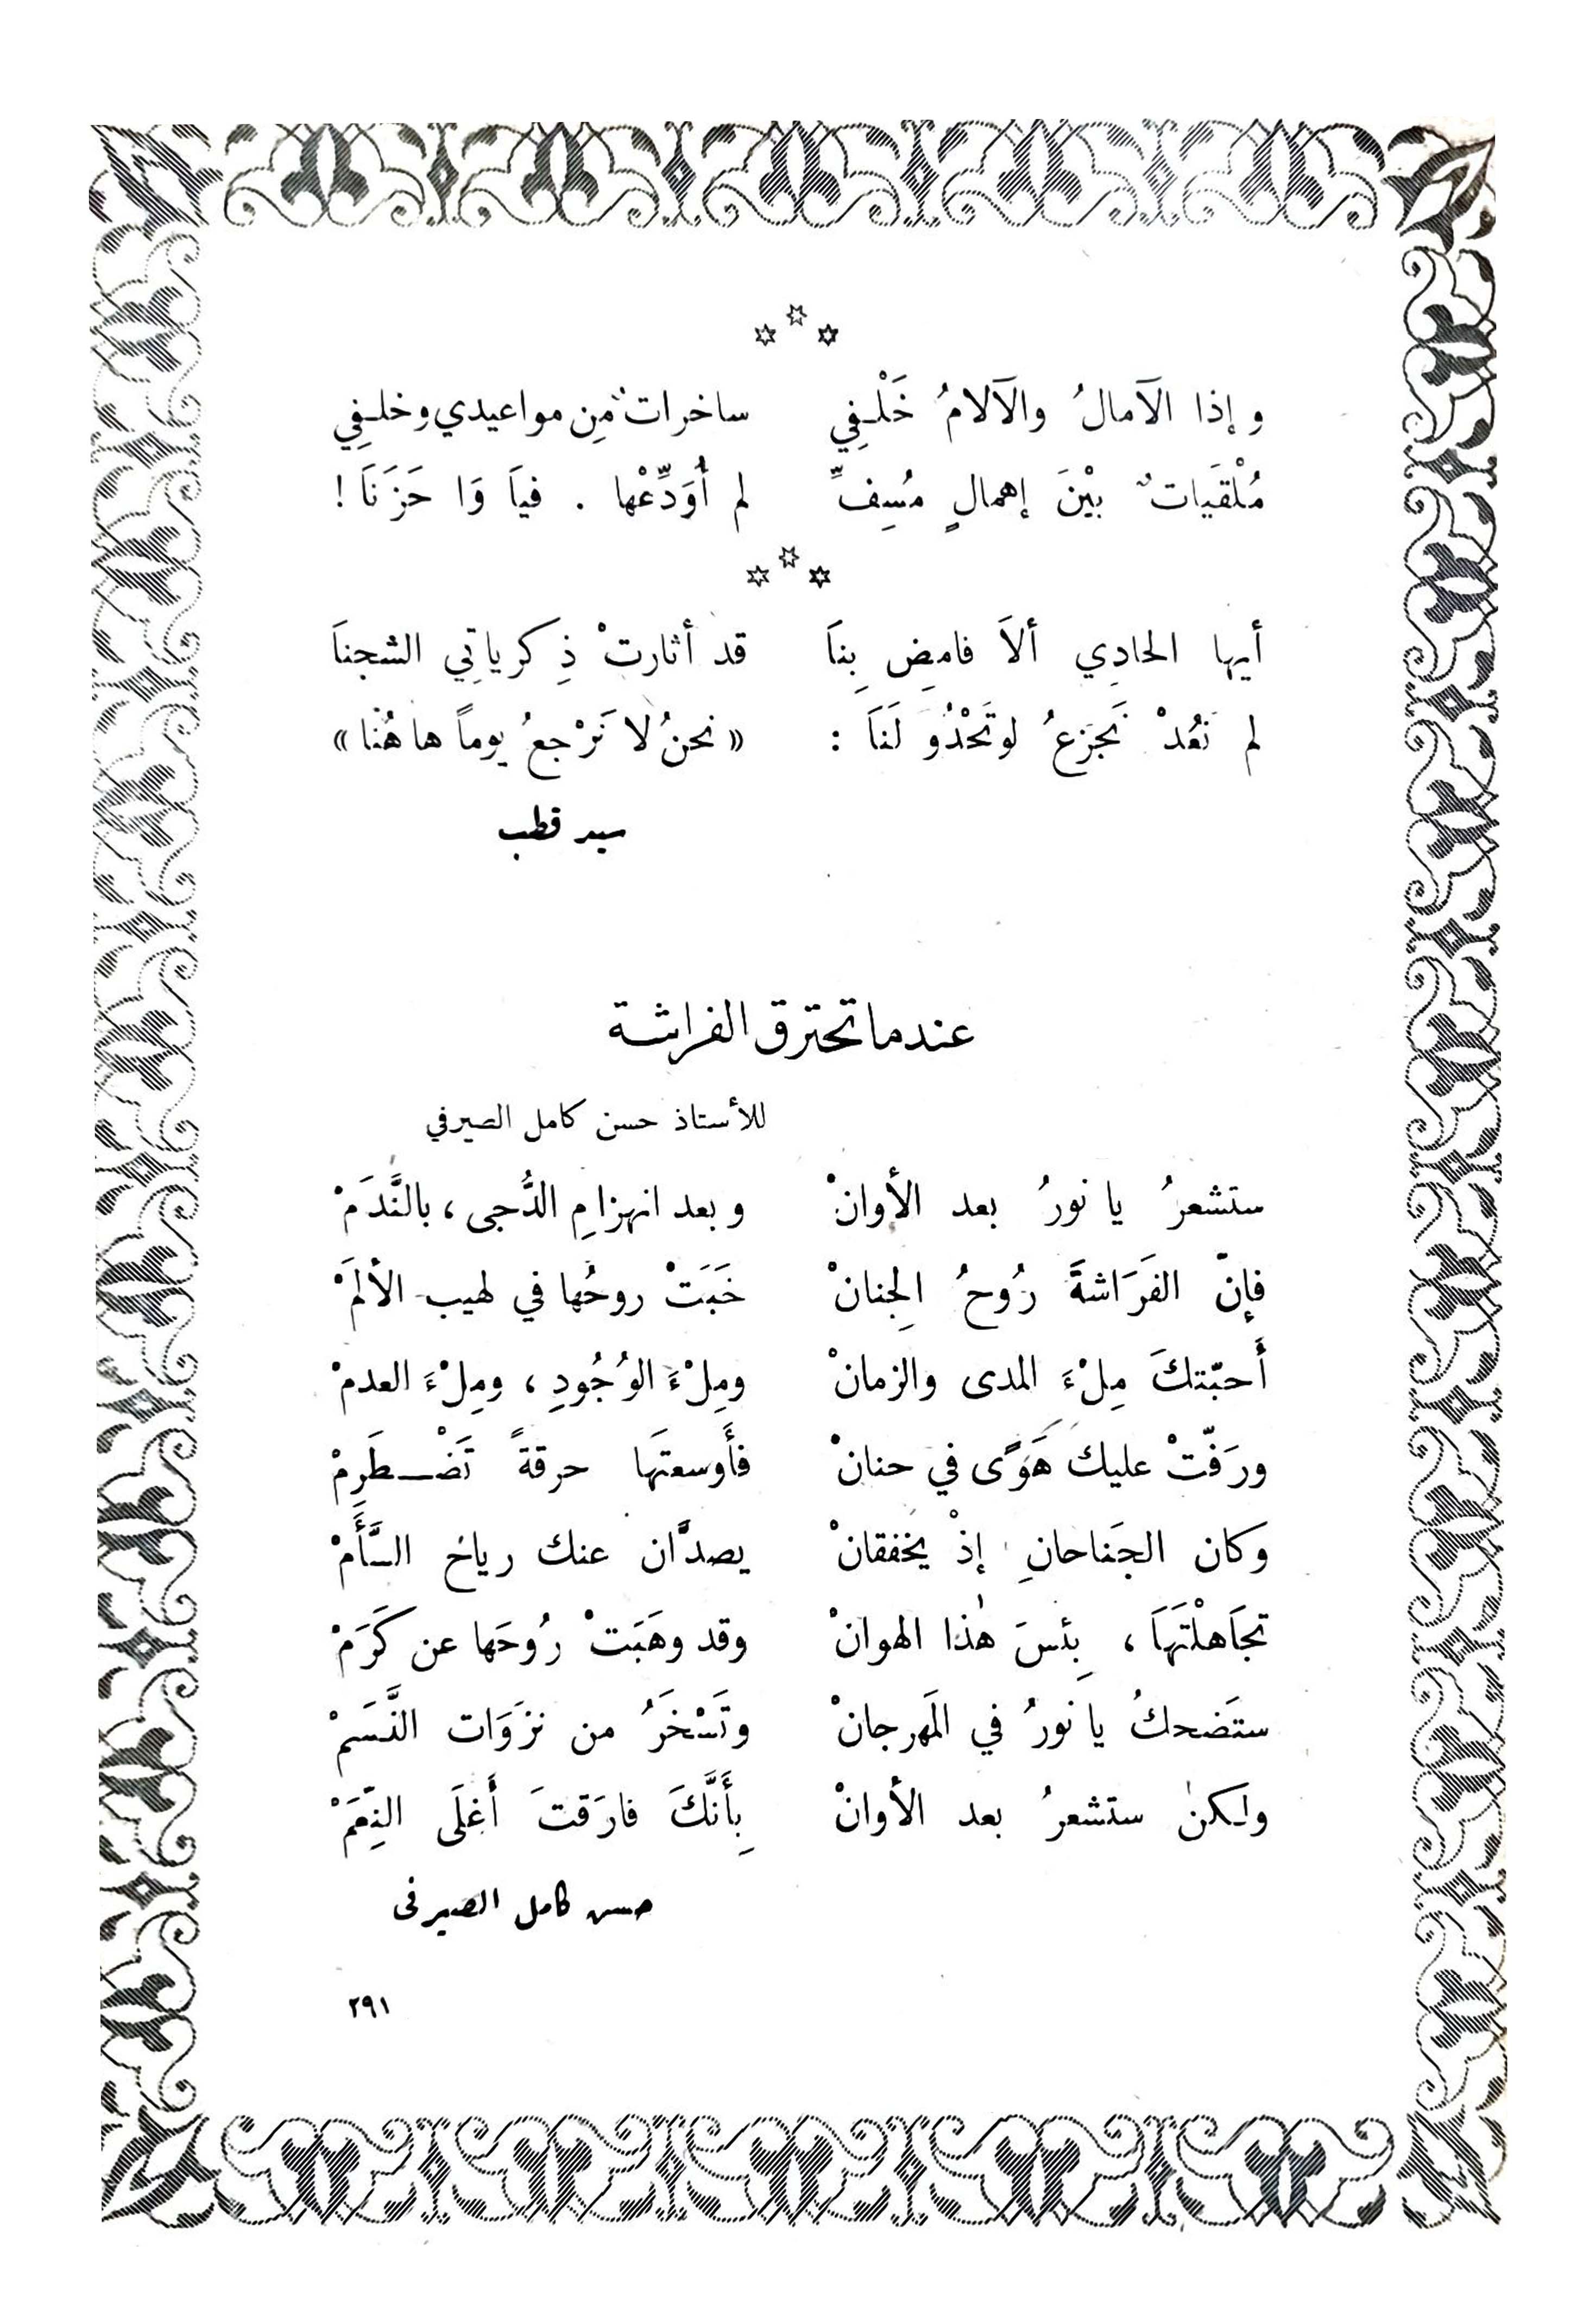 وإذا الآمالُ والآلامُ خَلْفِي ساخراتٌ مِن مواعيدي وخلفِي
مُلْقَيَاتٌ بيْنَ إهمالٍ مُسِفٍّ لم أُوَدِّعْها . فيَا وَا حَزَنَا !
أيها الحادِي ألاَ فامضِ بِنَا قد أثارتْ ذِكرياتِي الشجنَا
لم نَعُدْ نَجْزَعُ لو تَحْدُو لَنَا : « نحنُ لا نَرْجعُ يوماً هاهُنا »
سيد قطب
عندما تحترق الفراشة
للأستاذ حسن كامل الصيرفي
ستشعرُ يا نورُ بعد الأوانْ وبعد انهزامِ الدُّجى ، بالنَّدَمْ
فإنّ الفَرَاشةَ رُوحُ الجِنانْ خَبَتْ روحُها في لهيب الألَمْ
أَحبّتكَ مِلْءَ المدى والزمانْ ومِلْءَ الوُجُودِ ، ومِلْءَ العدمْ
ورَفّتْ عليك هَوًى في حنانْ فأَوسعتَها حرقةً تَضْطَرِمْ
وكان الجَناحانِ إذْ يخفقانْ يصدَّان عنك رياح السَّأَمْ
تجَاهلْتَهَا ، بِئسَ هٰذا الهوانْ وقد وهَبَتْ رُوحَها عن كَرَمْ
ستَضحكُ يا نورُ في المَهرجانْ وتَسْخَرُ من نزَوَات النَّسَمْ
ولكنْ ستشعرُ بعد الأوانْ بِأَنَّكَ فارَقتَ أَغلَى النِّعَمْ
حسن كامل الصيرفى
٢٩١